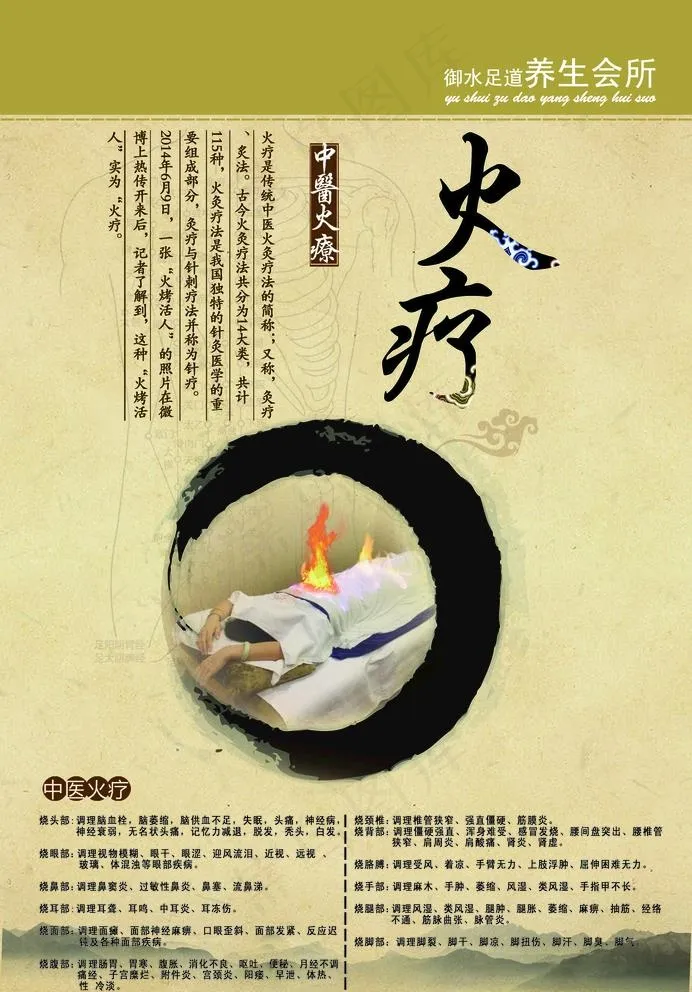 御水足道养生会所
yu shui zu dao yang sheng hui suo
火疗
中醫火療
火疗是传统中医火灸疗法的简称；又称，灸疗
、灸法。古今火灸疗法共分为14大类，共计
115种，火灸疗法是我国独特的针灸医学的重
要组成部分，灸疗与针刺疗法并称为针疗。
2014年6月9日，一张“火烤活人”的照片在微
博上热传开来后，记者了解到，这种“火烤活
人”实为“火疗。
足阳明胃经
足太阴脾经
中医火疗
烧头部:调理脑血栓，脑萎缩，脑供血不足，失眠，头痛，神经病，
神经衰弱，无名状头痛，记忆力减退，脱发，秃头，白发。
烧眼部:调理视物模糊、眼干、眼涩、迎风流泪、近视、远视 、
玻璃、体混浊等眼部疾病。
烧鼻部:调理鼻窦炎、过敏性鼻炎、鼻塞、流鼻涕。
烧耳部:调理耳聋、耳鸣、中耳炎、耳冻伤。
烧面部:调理面瘫、面部神经麻痹、口眼歪斜、面部发紧、反应迟
钝及各种面部疾病。
烧腹部:调理肠胃、胃寒、腹胀、消化不良、呕吐、便秘、月经不调
痛经、子宫糜烂、附件炎、宫颈炎、阳痿、早泄、体热、
性 冷淡。
烧颈椎:调理椎管狭窄、强直僵硬、筋膜炎。
烧背部:调理僵硬强直、浑身难受、感冒发烧、腰间盘突出、腰椎管
狭窄、肩周炎、肩酸痛、肾炎、肾虚。
烧胳膊:调理受风、着凉、手臂无力、上肢浮肿、屈伸困难无力。
烧手部:调理麻木、手肿、萎缩、风湿、类风湿、手指甲不长。
烧腿部:调理风湿、类风湿、腿肿、腿胀、萎缩、麻痹、抽筋、经络
不通、筋脉曲张、脉管炎。
烧脚部: 调理脚裂、脚干、脚凉、脚扭伤、脚汗、脚臭、脚气